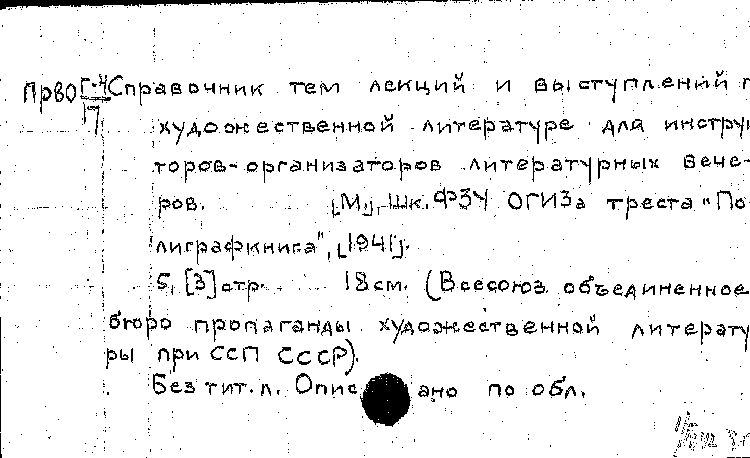 ПрВО Г-4 Справочник тем лекций и выступлений п
17 художественной литературе для инстру
торов-организаторов литературных вече-
ров. [М.], шк. ФЗУ ОГИЗа треста "По
лиграфкнига", [1941].
5, [3] стр. 18 см. (Всесоюз. объединенное
бюро пропаганды художественной литерату
ры при ССП СССР).
Без тит. л. Описано по обл.